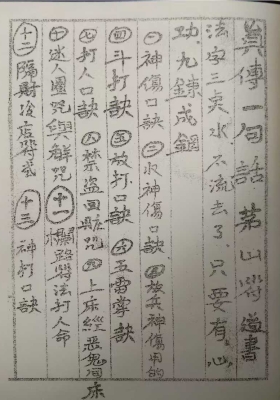 真傳一句話 茅山符道書
法字三点水不流去了只要有心
功九鍊成鋼
㊀神傷口訣㊂水神傷口訣 放兵神傷咒的
㊃斗打口訣㊄放打口訣㊅五雷掌訣
㊆打人口訣㊇禁盜回駁咒㊈上床經惡鬼回床
㊉迷人圈咒與解咒(十一)攔路符法打人命
(十二)隔財後店符式(十三)神打口訣